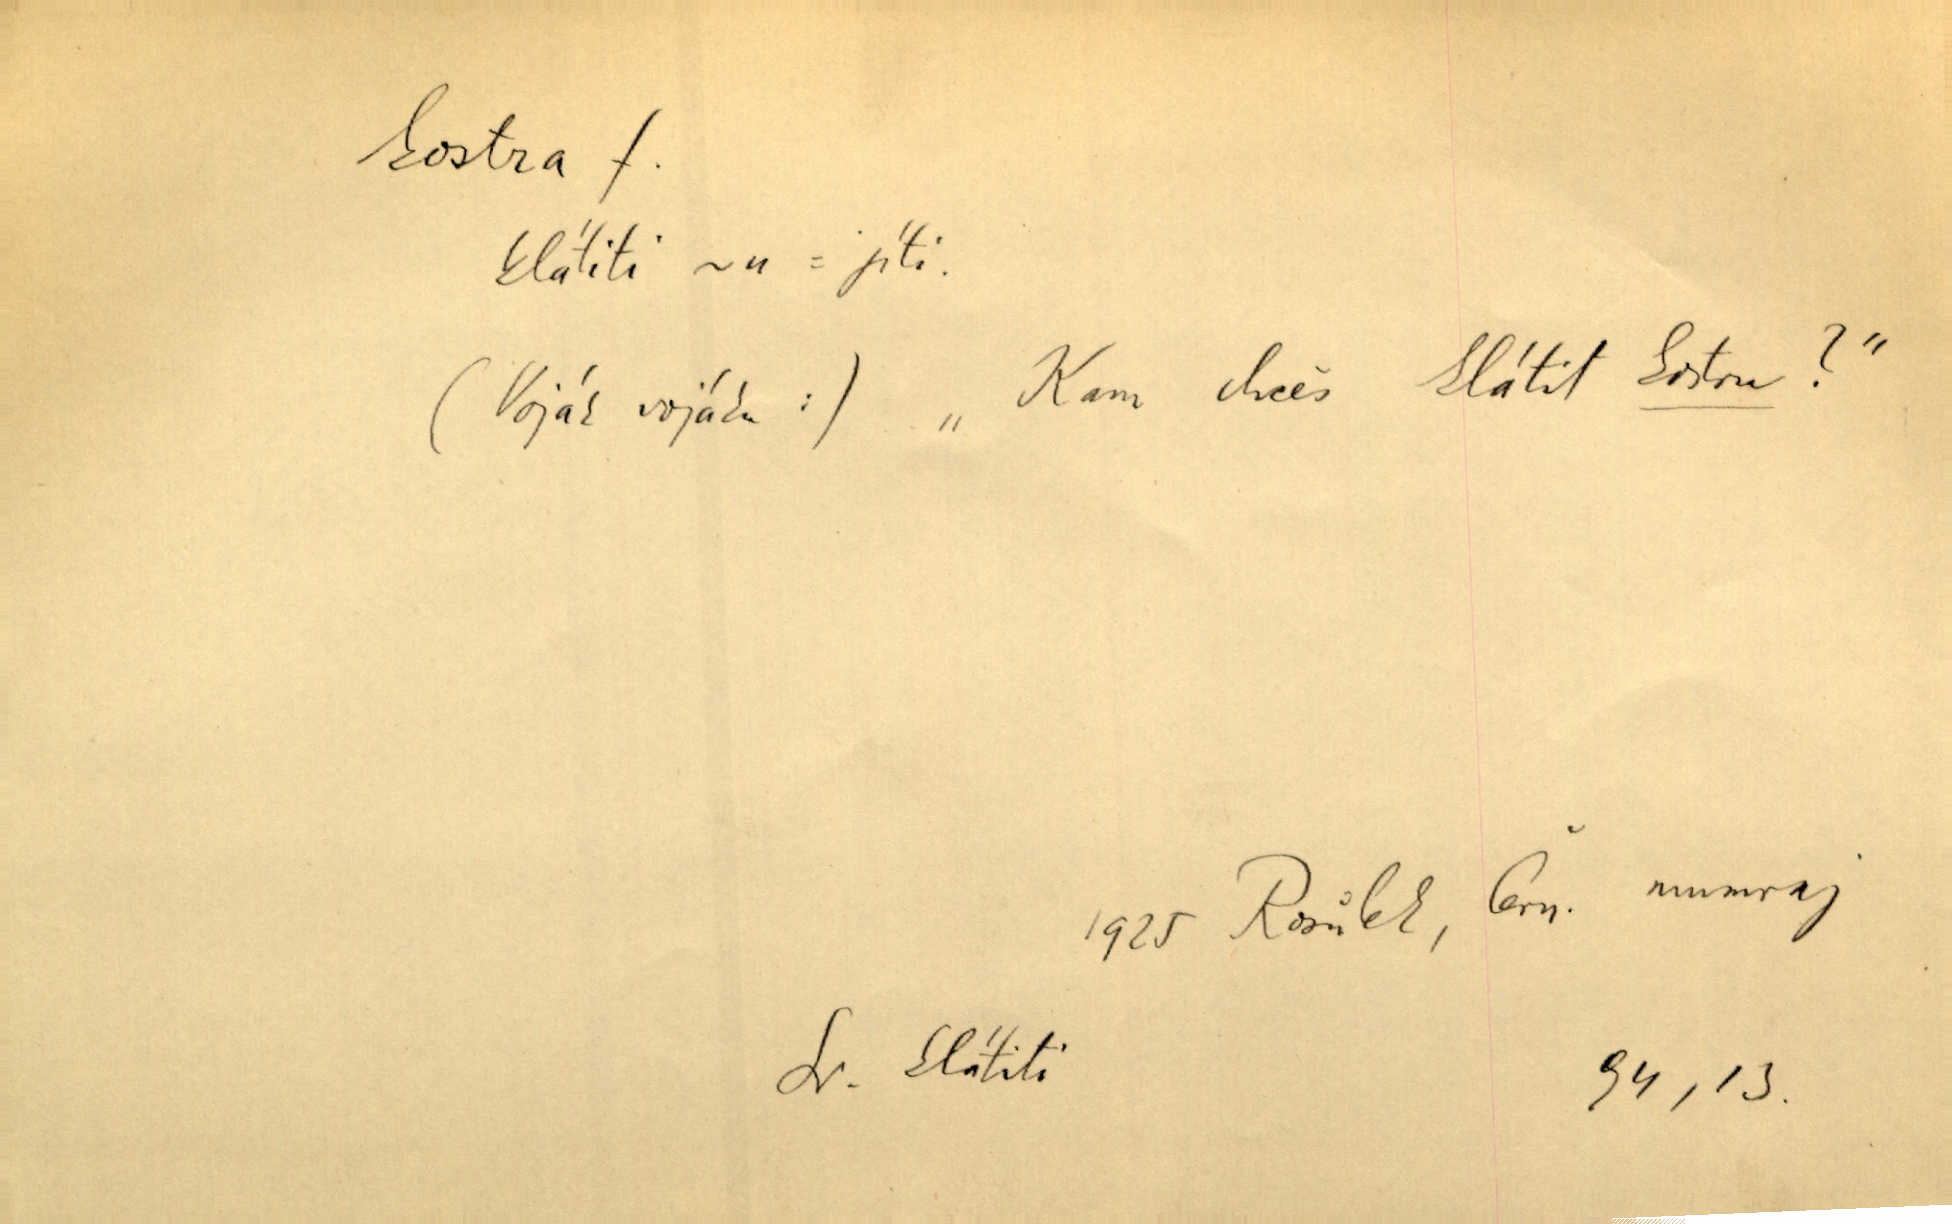 kostra f.
klátiti ~u = jíti.
(Voják vojáku :) „Kam chceš klátit kostru?“
1925 Rosůlek, Čern. mumraj
Sr. klátiti 94, 13.